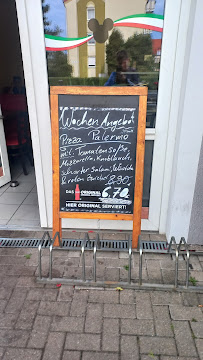 Wochen Angebot
Pizza Palermo
mit Tomatensoße,
Mozzarella, Knoblauch,
scharfer Salami,
& roten Zwiebel 8,90
DAS ORIGINAL 6,70
HIER ORIGINAL SERVIERT!